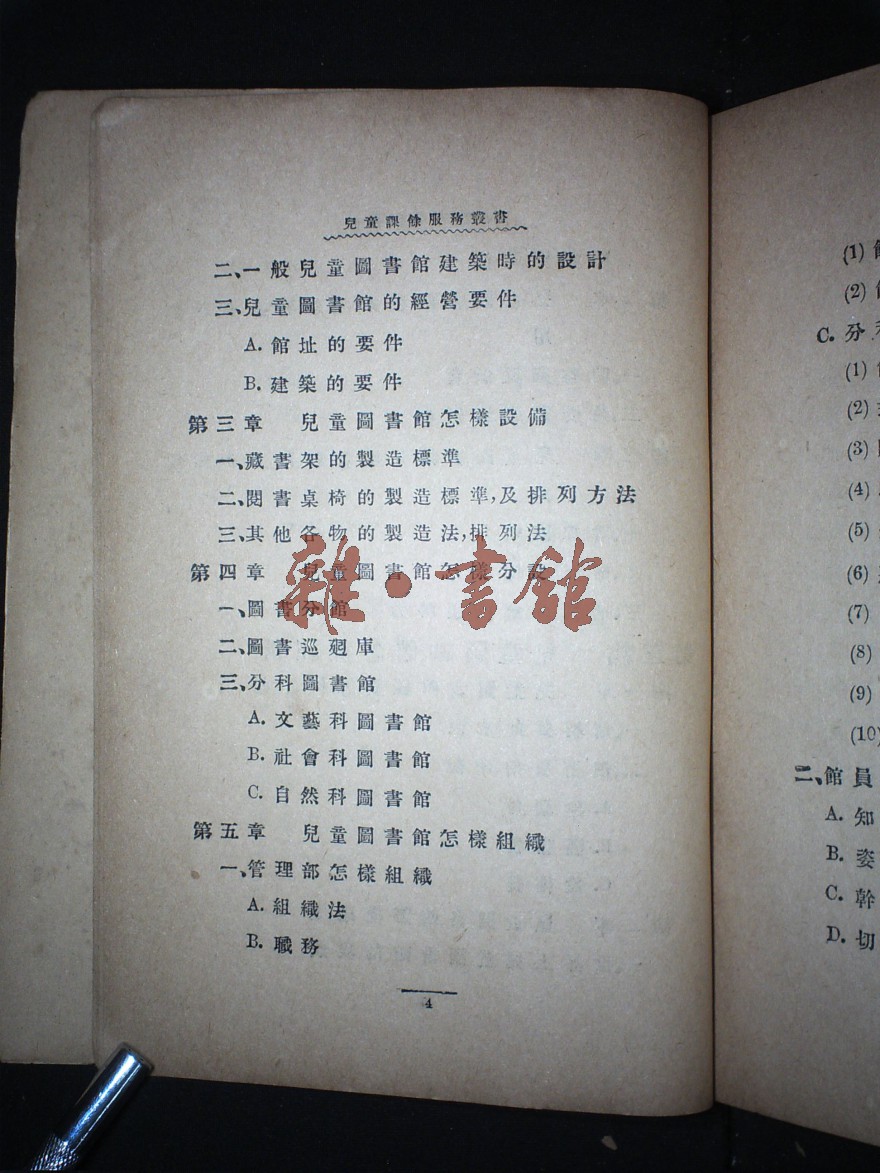 兒童課餘服務叢書
二、一般兒童圖書館建築時的設計
三、兒童圖書館的經營要件
A. 館址的要件
B. 建築的要件
第三章 兒童圖書館怎樣設備
一、藏書架的製造標準
二、閱書桌椅的製造標準,及排列方法
三、其他各物的製造法,排列法
第四章 兒童圖書館怎樣分設
一、圖書分館
二、圖書巡廻庫
三、分科圖書館
A. 文藝科圖書館
B. 社會科圖書館
C. 自然科圖書館
第五章 兒童圖書館怎樣組織
一、管理部怎樣組織
A. 組織法
B. 職務
4
雜·書館
(1)
(2)
C. 分
(1)
(2)
(3)
(4)
(5)
(6)
(7)
(8)
(9)
(10)
二、館員
A. 知
B. 姿
C. 幹
D. 切